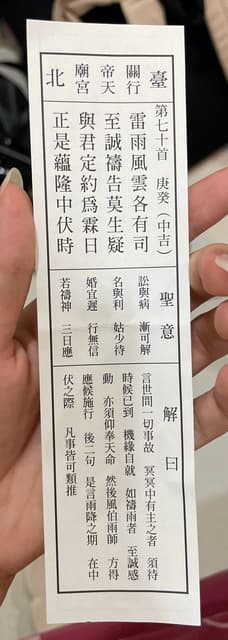 臺北
關帝廟
行天宮
第七十首 庚癸(中吉)
雷雨風雲各有司
至誠禱告莫生疑
與君定約為霖日
正是蘊隆中伏時
聖意
訟與病 漸可解
名與利 姑少待
婚宜遲 行無信
若禱神 三日應
解曰
言世間一切事故 冥冥中有主之者 須待
時候已到 機緣自就 如禱雨者 至誠感
動 亦須仰奉天命 然後風伯雨師 方得
應候施行 後二句 是言雨降之期 在中
伏之際 凡事皆可類推